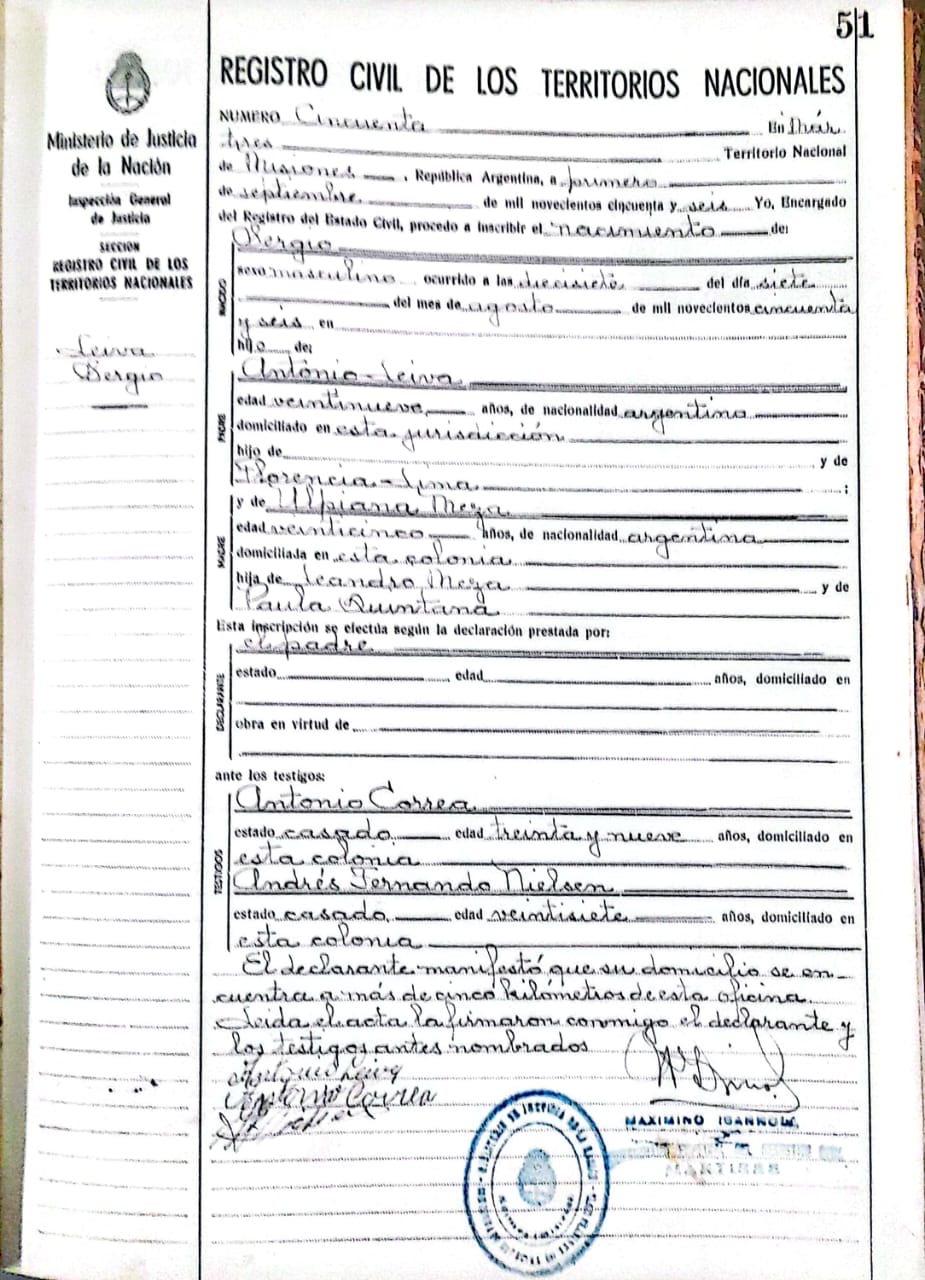 51
Ministerio de Justicia
de la Nación
Inspección General
de Justicia
SECCION
REGISTRO CIVIL DE LOS
TERRITORIOS NACIONALES
Leiva
Sergio
REGISTRO CIVIL DE LOS TERRITORIOS NACIONALES
NUMERO Cincuenta En
tres Territorio Nacional
de Misiones, República Argentina, a primero
de septiembre de mil novecientos cincuenta y seis Yo, Encargado
del Registro del Estado Civil, procedo a inscribir el nacimiento de:
Sergio
sexo masculino ocurrido a las diecisiete del día siete
del mes de agosto de mil novecientos cincuenta
y seis en
hijo de:
PADRE
Antonio Leiva
edad veintinueve años, de nacionalidad argentina
domiciliado en esta jurisdicción
hijo de y de
Florencia Lima ;
MADRE
y de Ulpiana Meza
edad veinticinco años, de nacionalidad argentina
domiciliada en esta colonia
hija de Leandro Meza y de
Paula Quintana
Esta inscripción se efectúa según la declaración prestada por:
DECLARANTE
el padre
estado edad años, domiciliado en
obra en virtud de
ante los testigos:
TESTIGOS
Antonio Correa
estado casado edad treinta y nueve años, domiciliado en
esta colonia
Andrés Fernando Nielsen
estado casado edad veintisiete años, domiciliado en
esta colonia
El declarante manifestó que su domicilio se en-
cuentra a más de cinco kilómetros de esta oficina.
Leida el acta la firmaron conmigo el declarante y
los testigos antes nombrados
Antonio Leiva
Antonio Correa
MAXIMINO